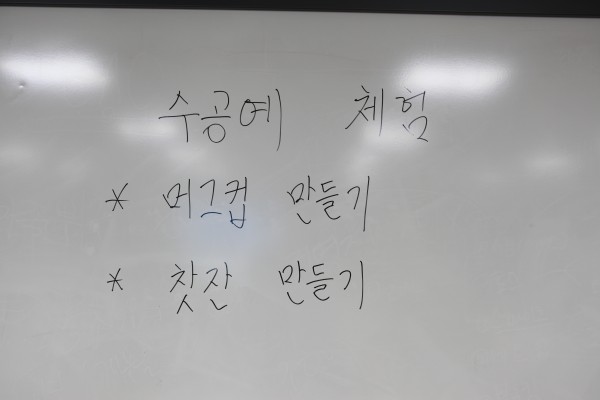 수공예 체험
* 머그컵 만들기
* 찻잔 만들기